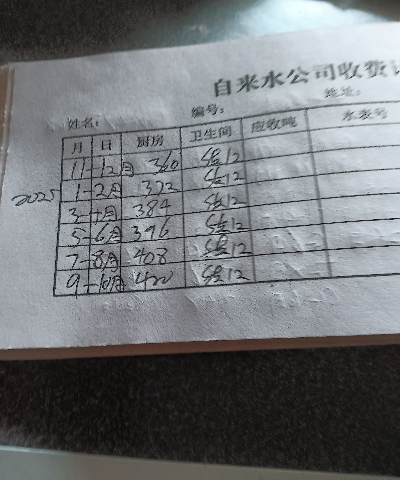 自来水公司收费
姓名： 编号： 地址：
月 日 厨房 卫生间 应收吨 水表号
11-12月 360 12
2025 1-2月 372 12
3-4月 384 12
5-6月 396 12
7-8月 408 12
9-10月 420 12